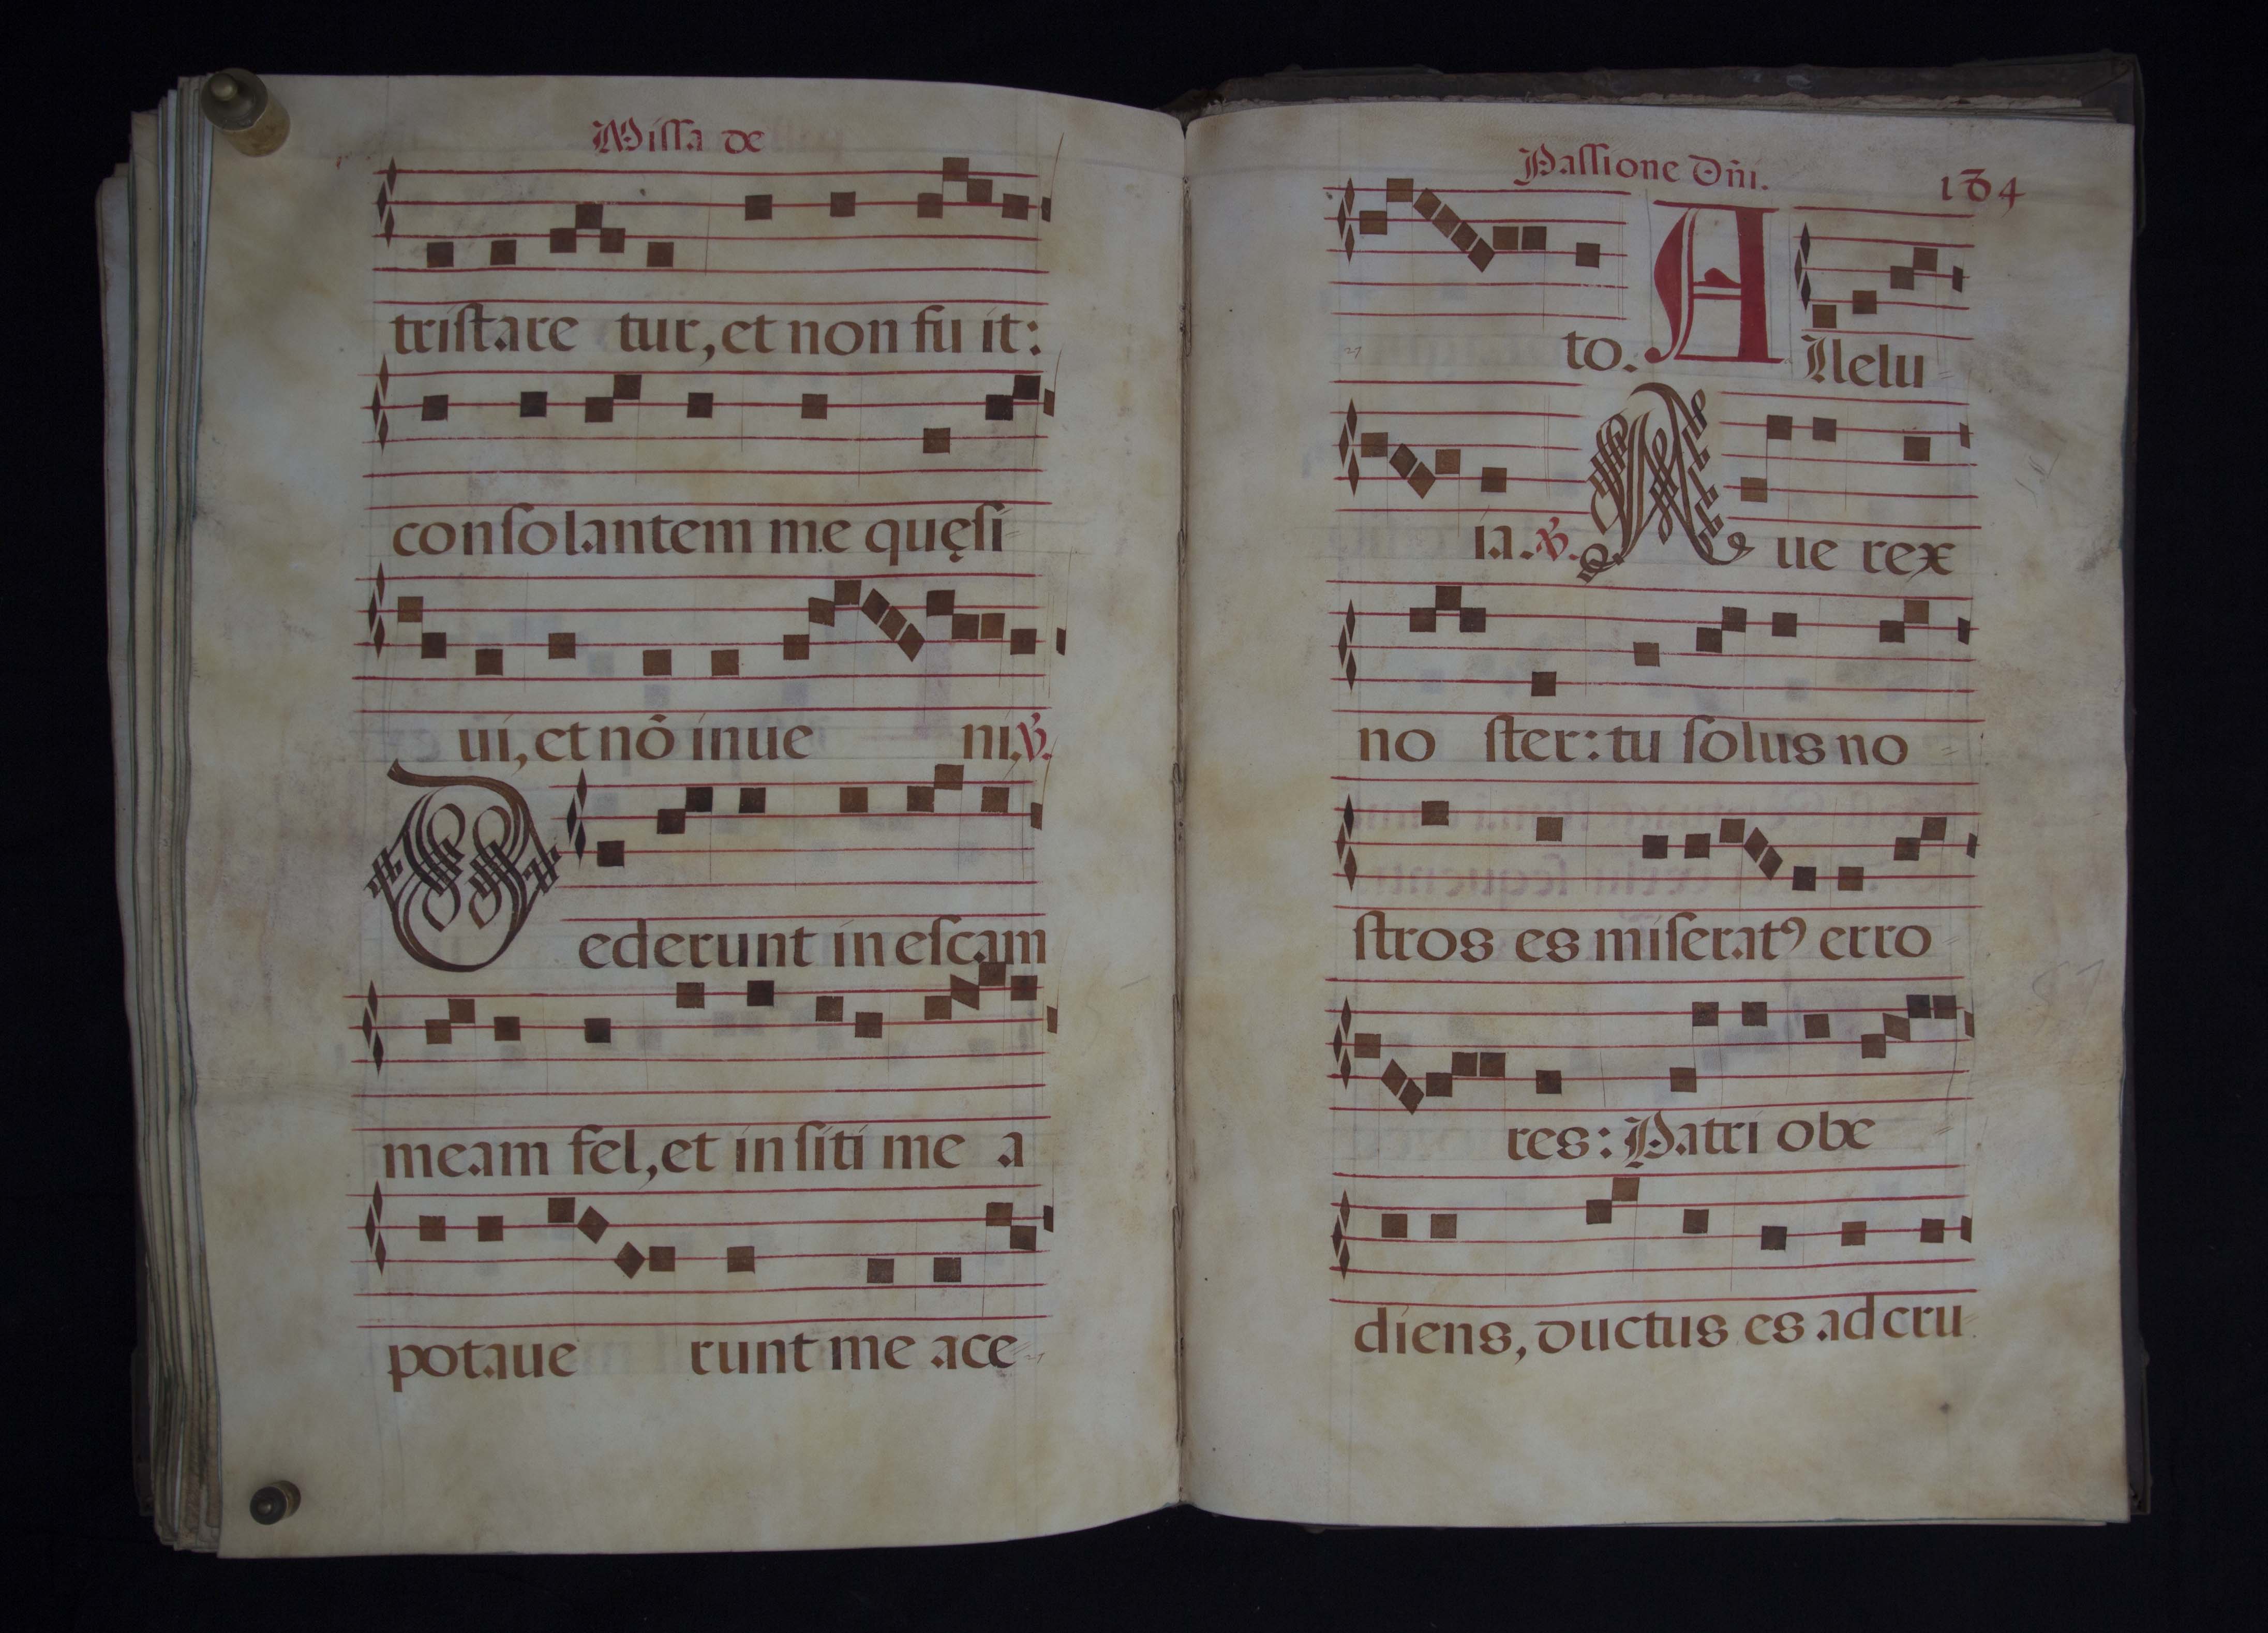 Missa de
tristare tur, et non fu it:
consolantem me quęsi
ui, et nō inue ni. ℣.
Dederunt in escam
meam fel, et in siti me a
potaue runt me ace
Passione Dñi.
to. Allelu
ia. ℣. Aue rex
no ster: tu solus no
stros es miseratꝰ erro
res: Patri obe
diens, ductus es ad cru